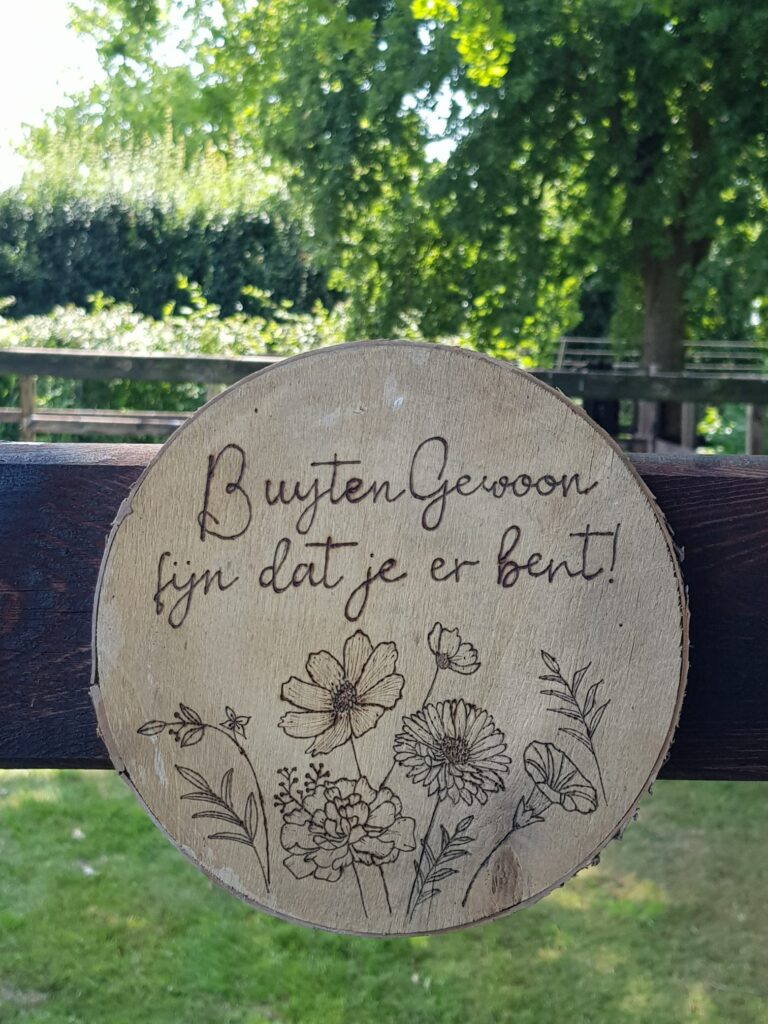 Buyten Gewoon
fijn dat je er bent!